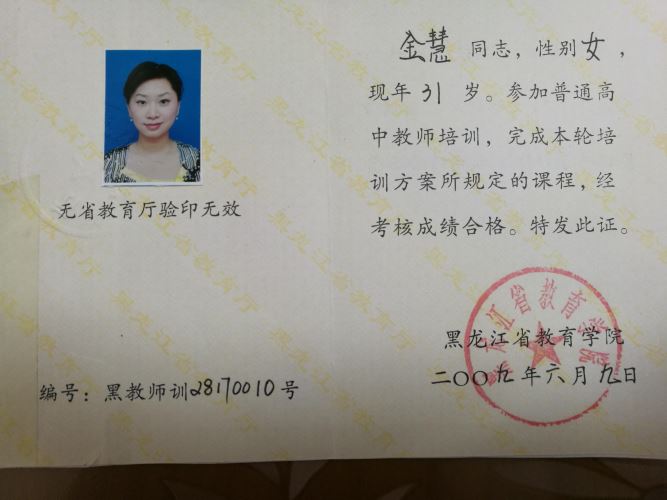 无省教育厅验印无效
编号：黑教师训28170010号
金慧 同志，性别女，
现年31岁。参加普通高
中教师培训，完成本轮培
训方案所规定的课程，经
考核成绩合格。特发此证。
黑龙江省教育学院
二〇〇九年六月九日
黑龙江省教育学院
黑龙江省教育厅